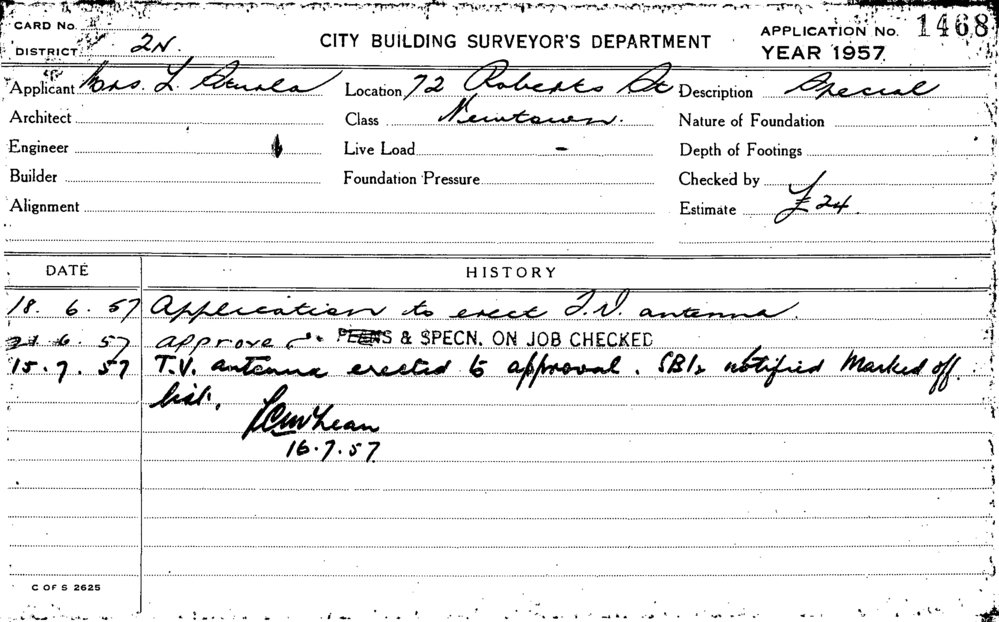 CARD No.
DISTRICT 2N.
CITY BUILDING SURVEYOR'S DEPARTMENT
APPLICATION No. 1468
YEAR 1957
Applicant Mrs. L
Location 72 Roberts St
Description Special
Architect
Class Newtown.
Nature of Foundation
Engineer
Live Load -
Depth of Footings
Builder
Foundation Pressure
Checked by
Alignment
Estimate £24.
DATE HISTORY
18. 6. 57 Application to erect T.V. antenna.
21. 6. 57 approve PLANS & SPECN. ON JOB CHECKED
15.7.57 T.V. antenna erected to approval. notified Marked off
list.
16.7.57
C OF S 2625